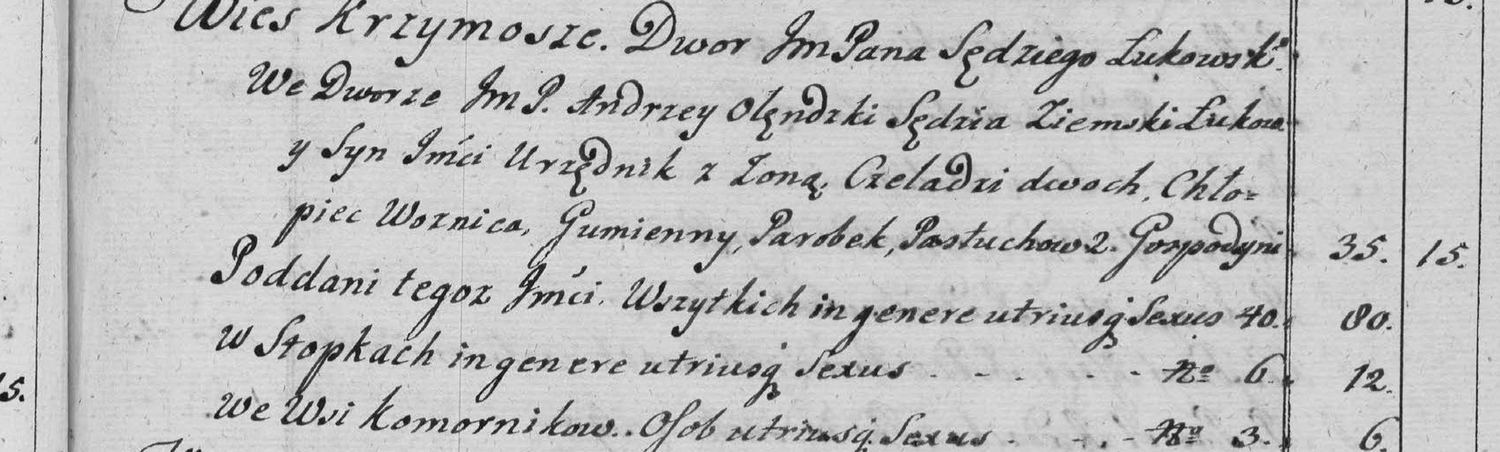 Wies Krzymosze. Dwor Jm Pana Sędziego Łukowsk°
We Dworze Jm P. Andrzey Olęndzki Sędzia Ziemski Łukows
y Syn Jmći Urzędnik z Zoną, Czeladzi dwoch, Chło=
piec Woznica, Gumienny, Parobek, Pastuchow 2. Gospodyni 35. 15.
Poddani tegoz Jmći. Wszytkich in genere utriusq Sexus 40. 80.
w Stopkach in genere utriusq Sexus . - . . - - No 6. 12.
We Wsi Komornikow. Osob utriusq Sexus . - . - No 3. 6.
15.